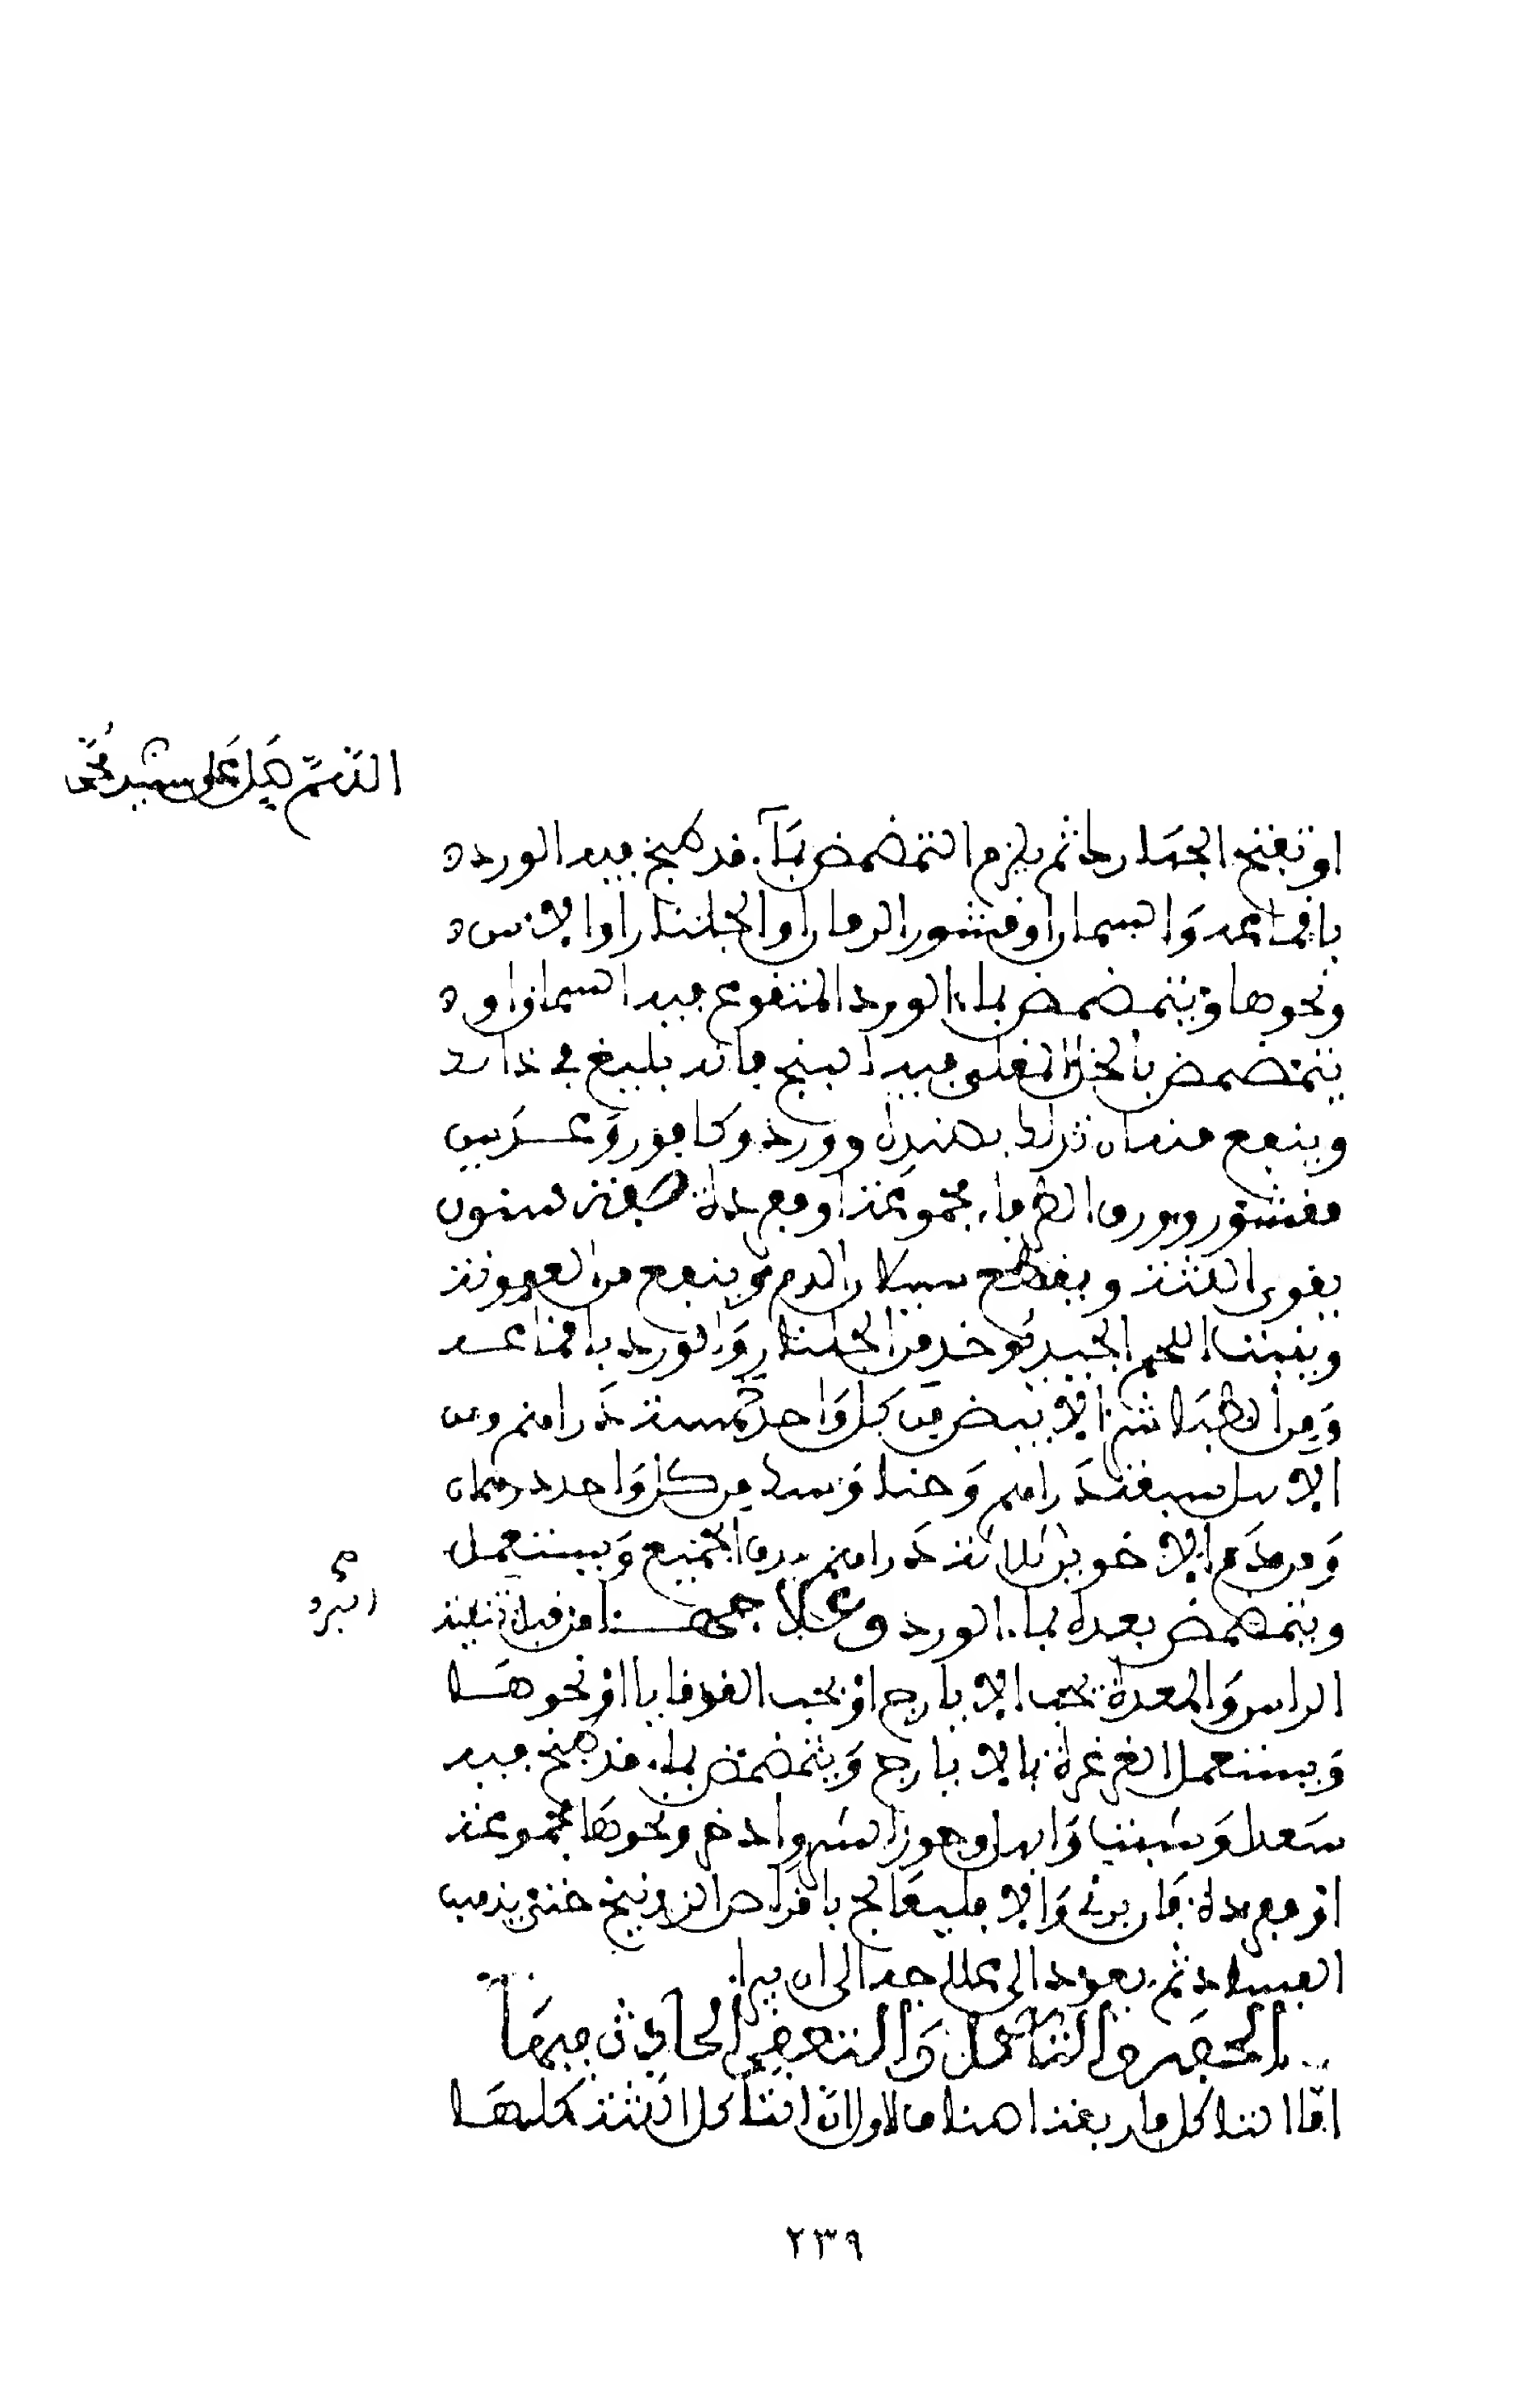 اللهم صل على سيدنا محمد
او تفتح الجهار رطا ثم يلزم التمضمض بماء قد طبخ فيه الورد
باقماعه والسماق او قشور الرمان او الجلنار او الاس
ونحوها ويتمضمض بماء الورد المنقوع فيه السماق او
يتمضمض بالخل المغلى فيه البنج فانه بليغ في ذلك
وينفع منه ان تدلك بصندل وورد وكافور وعدس
مقشور وبورق الطرفاء مجموعة او مفردة صفة سنون
يقوى اللثة ويقطع سيلان الدم وينفع من العفونة
وينبت اللحم الجيد يوخذ من الجلنار والورد باقماعه
ومن الطباشير الابيض من كل واحد خمسة دراهم ومن
الاثل سبعة دراهم وحنا وسك من كل واحد درهمان
ومن دم الاخوين ثلاثة دراهم يدق الجميع ويستعمل
ويتمضمض بعده بماء الورد وعلاجها من قبل تنقية
البرد
الراس والمعدة بحب الايارج او بحب القوقايا او نحوها
ويستعمل الغرغرة بالايارج ويتمضمض بماء قد طبخ فيه
سعد وشبت وابهل وجوز السرو واذخر ونحوها مجموعة
او مفردة فان برئ والا فليعالج باقراص الزرنيخ حتى يذهب
الفساد ثم يعود الى علاجه الى ان يبرا
الحفر والتآكل والتعفن الحادث فيها
اما التاكل فان بقذا هنا قالاول ان التاكل اللثة كلها
٢٣٩